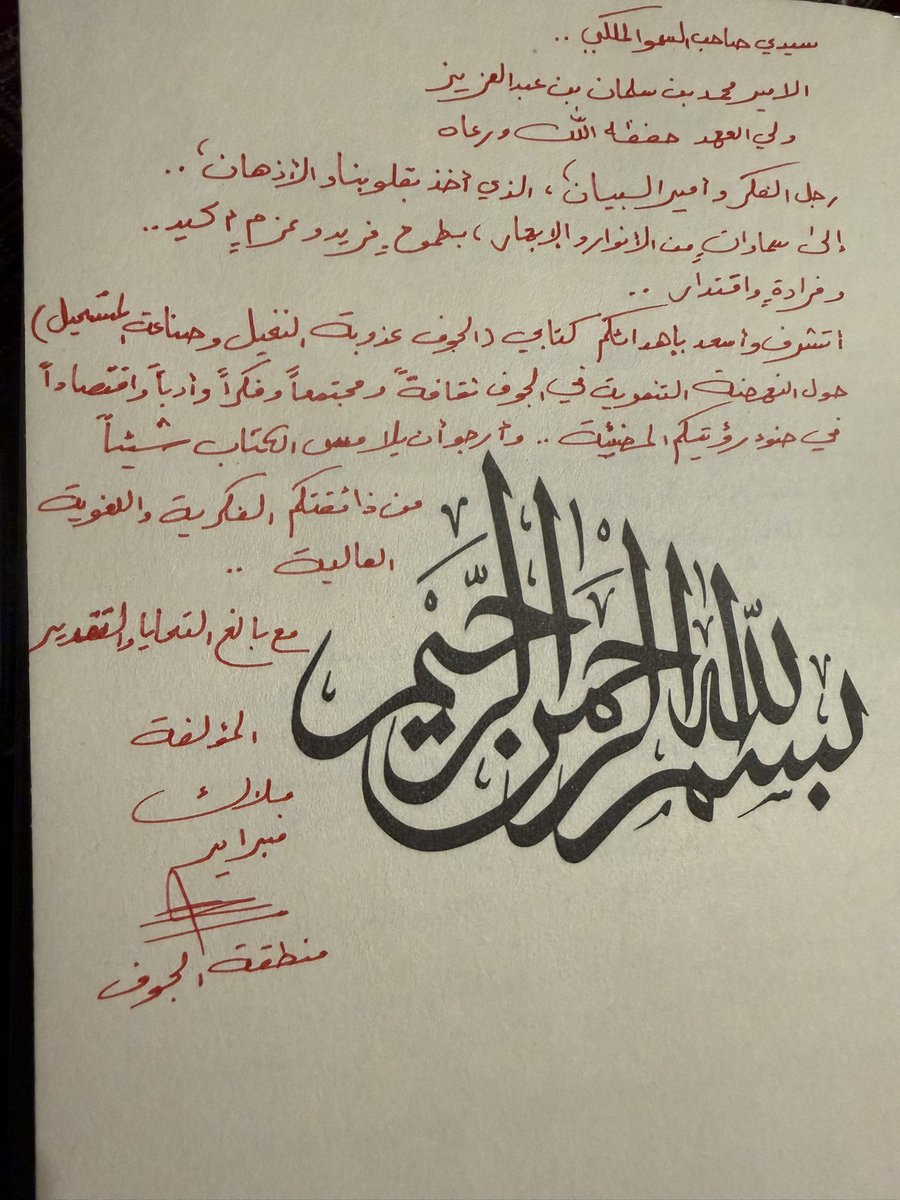 سيدي صاحب السمو الملكي ..
الامير محمد بن سلمان بن عبدالعزيز
ولي العهد حفظه الله ورعاه
رجل الفكر وأمير البيان، الذي أخذ بقلوبنا والأذهان، ..
إلى سماوات من الانوار والإبهار، بطموحٍ فريد وعزمٍ أكيد ..
وفرادةٍ واقتدار ..
أتشرف وأسعد بإهدائكم كتابي (الجوف عذوبة النخيل وصناعة المستحيل)
حول النهضة التنموية في الجوف ثقافةً ومجتمعاً وفكراً وأدباً واقتصاداً
في ضوء رؤيتكم المضيئة .. وأرجو أن يلامس الكتاب شيئاً
من ذائقتكم الفكرية واللغوية
العالية ..
مع بالغ التحايا والتقدير
بسم الله الرحمن الرحيم
المؤلفة
ملاك
منطقة الجوف